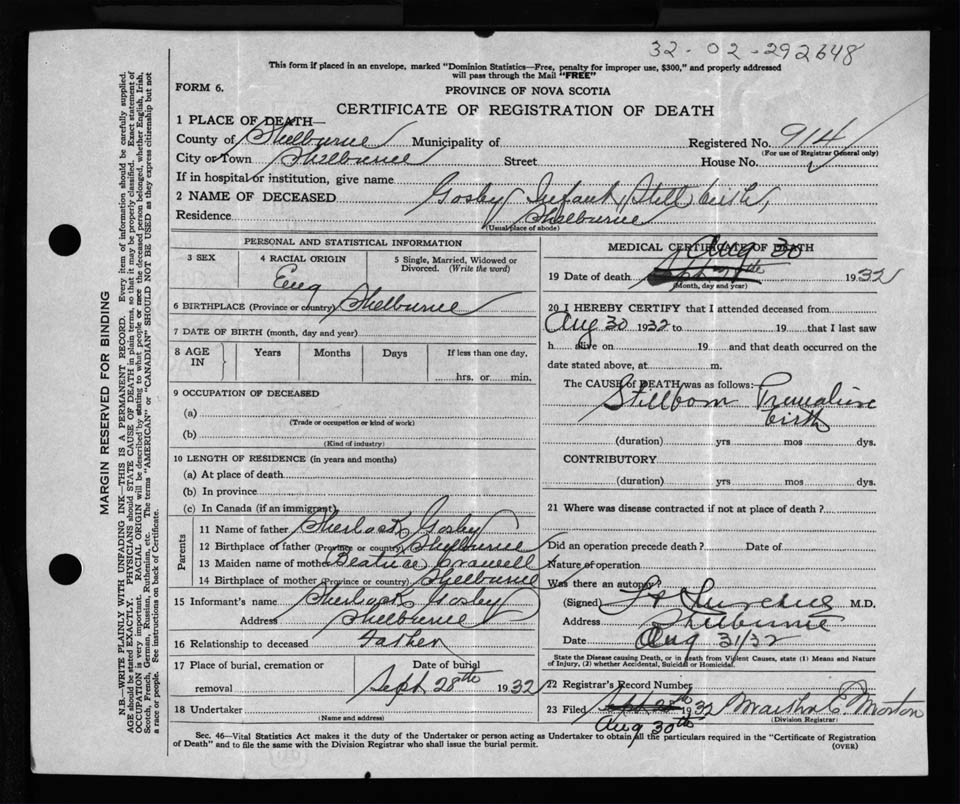 32-02-292648
This form if placed in an envelope, marked "Dominion Statistics—Free, penalty for improper use, $300," and properly addressed
will pass through the Mail "FREE"
FORM 6.
PROVINCE OF NOVA SCOTIA
CERTIFICATE OF REGISTRATION OF DEATH
1 PLACE OF DEATH—
County of Shelburne Municipality of Registered No. 914
(For use of Registrar General only)
City or Town Shelburne Street House No.
If in hospital or institution, give name
2 NAME OF DECEASED Gosby Infant, Still birth,
Residence Shelburne
(Usual place of abode)
PERSONAL AND STATISTICAL INFORMATION
3 SEX 4 RACIAL ORIGIN 5 Single, Married, Widowed or
Divorced. (Write the word)
Eng
6 BIRTHPLACE (Province or country) Shelburne
7 DATE OF BIRTH (month, day and year)
8 AGE IN Years Months Days If less than one day,
hrs. or min.
9 OCCUPATION OF DECEASED
(a)
(Trade or occupation or kind of work)
(b)
(Kind of industry)
10 LENGTH OF RESIDENCE (in years and months)
(a) At place of death
(b) In province
(c) In Canada (if an immigrant)
Parents
11 Name of father Sherlock Gosby
12 Birthplace of father (Province or country) Shelburne
13 Maiden name of mother Beatrice
14 Birthplace of mother (Province or country) Shelburne
15 Informant's name Sherlock Gosby
Address Shelburne
16 Relationship to deceased Father
17 Place of burial, cremation or Date of burial
removal Sept 28th 1932
18 Undertaker
(Name and address)
MEDICAL CERTIFICATE OF DEATH
Aug 30
19 Date of death 1932
(Month, day and year)
20 I HEREBY CERTIFY that I attended deceased from
Aug 30 1932 to 19 that I last saw
h alive on 19 and that death occurred on the
date stated above, at m.
The CAUSE of DEATH was as follows:
Stillborn Premature
birth
(duration) yrs mos dys.
CONTRIBUTORY
(duration) yrs mos dys.
21 Where was disease contracted if not at place of death?
Did an operation precede death? Date of
Nature of operation
Was there an autopsy?
(Signed) M.D.
Address Shelburne
Date Aug 31/32
State the Disease causing Death, or in death from Violent Causes, state (1) Means and Nature
of Injury, (2) whether Accidental, Suicidal or Homicidal.
22 Registrar's Record Number
23 Filed 1932 Martha C. Morton
(Division Registrar)
Aug 30th
Sec. 46—Vital Statistics Act makes it the duty of the Undertaker or person acting as Undertaker to obtain all the particulars required in the "Certificate of Registration
of Death" and to file the same with the Division Registrar who shall issue the burial permit.
(OVER)
MARGIN RESERVED FOR BINDING
N.B.—WRITE PLAINLY WITH UNFADING INK—THIS IS A PERMANENT RECORD. Every item of information should be carefully supplied.
AGE should be stated EXACTLY. PHYSICIANS should STATE CAUSE OF DEATH in plain terms, so that it may be properly classified. Exact statement of
OCCUPATION is very important. RACIAL ORIGIN will be described by stating to what people or race the deceased person belonged, whether English, Irish,
Scotch, French, German, Russian, Ruthenian, etc. The terms "AMERICAN" or "CANADIAN" SHOULD NOT BE USED as they express citizenship but not
a race or people. See instructions on back of Certificate.